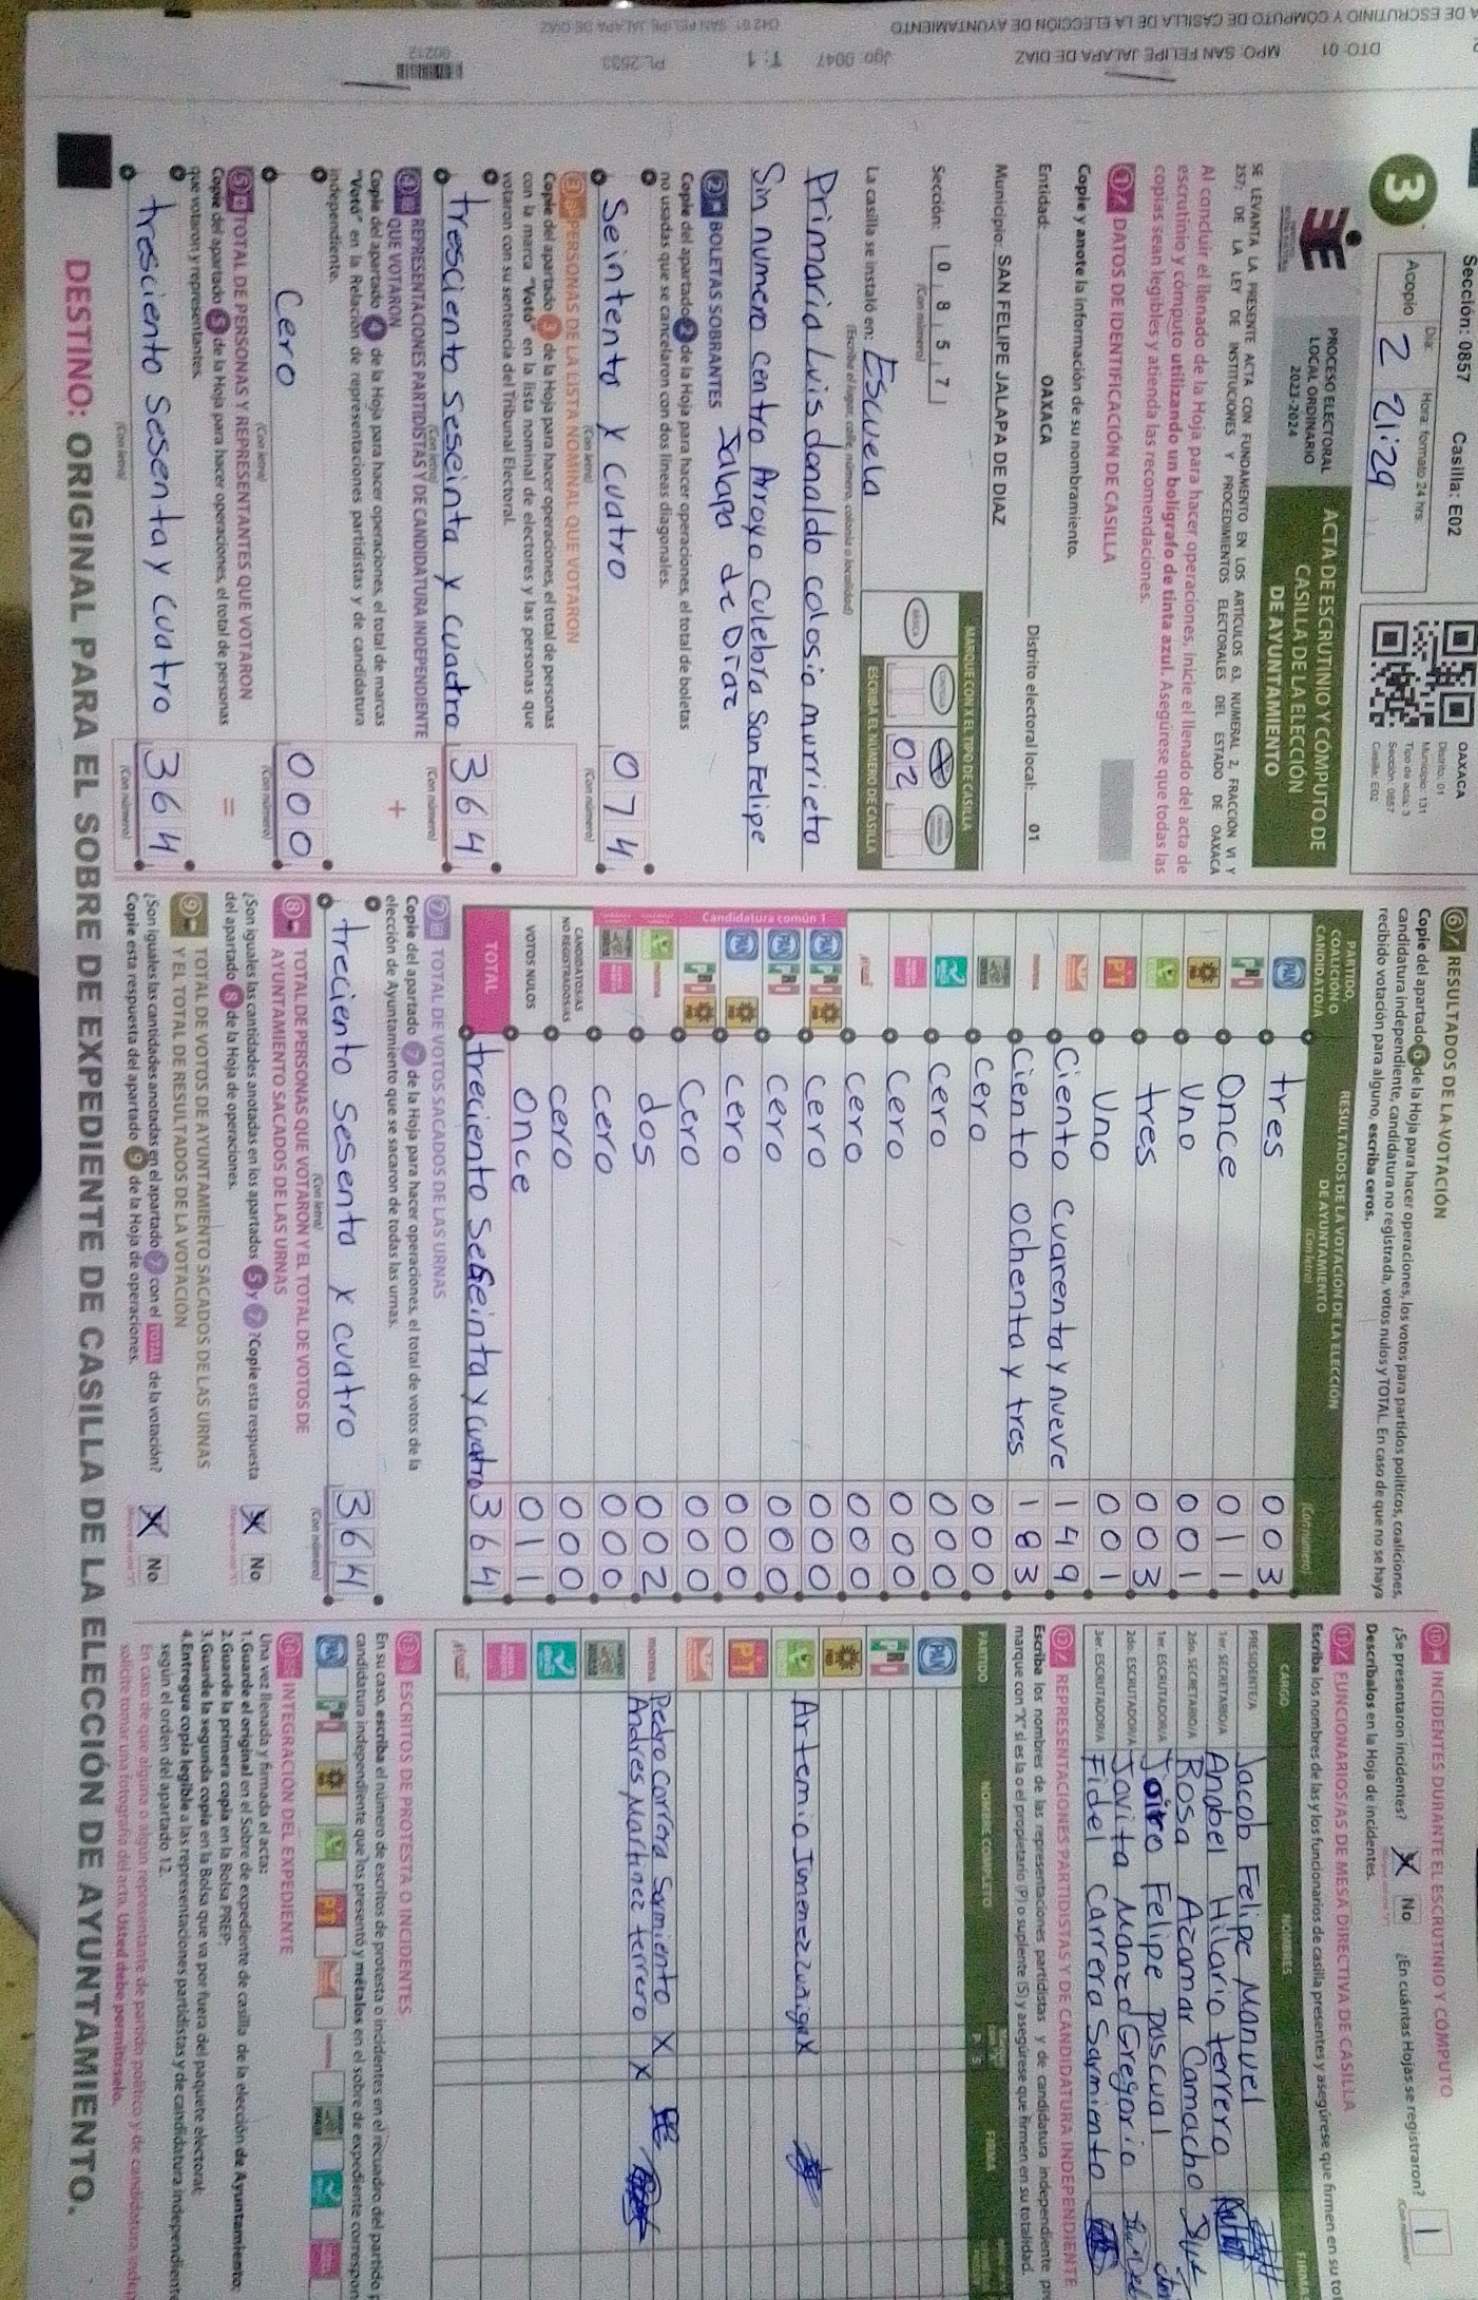 Sección: 0857 Casilla: E02
3
Día: Hora: formato 24 hrs.
Acopio 2 21:29
OAXACA
Distrito: 01
Municipio: 131
Tipo de acta: 3
Sección: 0857
Casilla: E02
PROCESO ELECTORAL
LOCAL ORDINARIO
2023-2024
ACTA DE ESCRUTINIO Y CÓMPUTO DE
CASILLA DE LA ELECCIÓN
DE AYUNTAMIENTO
SE LEVANTA LA PRESENTE ACTA CON FUNDAMENTO EN LOS ARTÍCULOS 63, NUMERAL 2, FRACCIÓN VI Y
257; DE LA LEY DE INSTITUCIONES Y PROCEDIMIENTOS ELECTORALES DEL ESTADO DE OAXACA
Al concluir el llenado de la Hoja para hacer operaciones, inicie el llenado del acta de
escrutinio y cómputo utilizando un bolígrafo de tinta azul. Asegúrese que todas las
copias sean legibles y atienda las recomendaciones.
1 DATOS DE IDENTIFICACIÓN DE CASILLA
Copie y anote la información de su nombramiento.
Entidad: OAXACA Distrito electoral local: 01
Municipio: SAN FELIPE JALAPA DE DIAZ
Sección: 0 8 5 7
(Con número)
MARQUE CON X EL TIPO DE CASILLA
BÁSICA
02
ESCRIBA EL NÚMERO DE CASILLA
La casilla se instaló en: Escuela
(Escriba el lugar, calle, número, colonia o localidad)
Primaria Luis donaldo colosio murrieta
Sin numero centro Arroyo Culebra San Felipe
Jalapa de Diaz
2 BOLETAS SOBRANTES
Copie del apartado 2 de la Hoja para hacer operaciones, el total de boletas
no usadas que se cancelaron con dos líneas diagonales.
Seintento y cuatro 074
(Con letra) (Con número)
3 PERSONAS DE LA LISTA NOMINAL QUE VOTARON
Copie del apartado 3 de la Hoja para hacer operaciones, el total de personas
con la marca "Votó" en la lista nominal de electores y las personas que
votaron con su sentencia del Tribunal Electoral.
tresciento seseinta y cuatro 364
(Con letra) (Con número)
4 REPRESENTACIONES PARTIDISTAS Y DE CANDIDATURA INDEPENDIENTE
QUE VOTARON
+
Copie del apartado 4 de la Hoja para hacer operaciones, el total de marcas
"Votó" en la Relación de representaciones partidistas y de candidatura
independiente.
Cero 000
(Con letra) (Con número)
5 TOTAL DE PERSONAS Y REPRESENTANTES QUE VOTARON
=
Copie del apartado 5 de la Hoja para hacer operaciones, el total de personas
que votaron y representantes.
tresciento sesenta y cuatro 364
(Con letra) (Con número)
6 RESULTADOS DE LA VOTACIÓN
Copie del apartado 6 de la Hoja para hacer operaciones, los votos para partidos políticos, coaliciones,
candidatura independiente, candidatura no registrada, votos nulos y TOTAL. En caso de que no se haya
recibido votación para alguno, escriba ceros.
PARTIDO,
COALICIÓN O
CANDIDATO/A
RESULTADOS DE LA VOTACIÓN DE LA ELECCIÓN
DE AYUNTAMIENTO
(Con letra) (Con número)
PAN tres 003
PRI Once 011
Uno 001
tres 003
PT Uno 001
Ciento cuarenta y nueve 149
morena Ciento ochenta y tres 183
cero 000
cero 000
cero 000
cero 000
Candidatura común 1
PAN PRI cero 000
PAN PRI cero 000
PAN cero 000
PRI Cero 000
morena dos 002
cero 000
CANDIDATOS/AS
NO REGISTRADOS/AS cero 000
VOTOS NULOS Once 011
TOTAL treciento seseinta y cuatro 364
7 TOTAL DE VOTOS SACADOS DE LAS URNAS
Copie del apartado 7 de la Hoja para hacer operaciones, el total de votos de la
elección de Ayuntamiento que se sacaron de todas las urnas.
treciento sesenta y cuatro 364
(Con letra) (Con número)
8 TOTAL DE PERSONAS QUE VOTARON Y EL TOTAL DE VOTOS DE
AYUNTAMIENTO SACADOS DE LAS URNAS
¿Son iguales las cantidades anotadas en los apartados 5 y 7 ? Copie esta respuesta
del apartado 8 de la Hoja de operaciones.
X No
9 TOTAL DE VOTOS DE AYUNTAMIENTO SACADOS DE LAS URNAS
Y EL TOTAL DE RESULTADOS DE LA VOTACIÓN
¿Son iguales las cantidades anotadas en el apartado 7 con el TOTAL de la votación?
Copie esta respuesta del apartado 9 de la Hoja de operaciones.
X No
10 INCIDENTES DURANTE EL ESCRUTINIO Y CÓMPUTO
¿Se presentaron incidentes? X No ¿En cuántas Hojas se registraron? 1
Descríbalos en la Hoja de incidentes.
11 FUNCIONARIOS/AS DE MESA DIRECTIVA DE CASILLA
Escriba los nombres de las y los funcionarios de casilla presentes y asegúrese que firmen en su to
CARGO NOMBRES FIRMA
PRESIDENTE/A Jacob Felipe Manuel
1er. SECRETARIO/A Anabel Hilario terrero
2do. SECRETARIO/A Rosa Azamar Camacho
1er. ESCRUTADOR/A Jairo Felipe pascual
2do. ESCRUTADOR/A Jovita Manzo Gregorio
3er. ESCRUTADOR/A Fidel Carrera Sarmiento
12 REPRESENTACIONES PARTIDISTAS Y DE CANDIDATURA INDEPENDIENTE
Escriba los nombres de las representaciones partidistas y de candidatura independiente pr
marque con "X" si es la o el propietario (P) o suplente (S) y asegúrese que firmen en su totalidad.
PARTIDO NOMBRE COMPLETO P S FIRMA
PAN
PRI
Artemio Jimenez zuñiga X
PT
morena Pedro Carrera Sarmiento X
Andres Martinez terrero X
13 ESCRITOS DE PROTESTA O INCIDENTES
En su caso, escriba el número de escritos de protesta o incidentes en el recuadro del partido p
candidatura independiente que los presentó y métalos en el sobre de expediente correspon
PAN PRI PT
INTEGRACIÓN DEL EXPEDIENTE
Una vez llenada y firmada el acta:
1. Guarde el original en el Sobre de expediente de casilla de la elección de Ayuntamiento;
2. Guarde la primera copia en la Bolsa PREP;
3. Guarde la segunda copia en la Bolsa que va por fuera del paquete electoral;
4. Entregue copia legible a las representaciones partidistas y de candidatura independiente
según el orden del apartado 12.
En caso de que alguna o algún representante de partido político y de candidatura indep
solicite tomar una fotografía del acta, Usted debe permitírselo.
DESTINO: ORIGINAL PARA EL SOBRE DE EXPEDIENTE DE CASILLA DE LA ELECCIÓN DE AYUNTAMIENTO.
A DE ESCRUTINIO Y CÓMPUTO DE CASILLA DE LA ELECCIÓN DE AYUNTAMIENTO
DTO: 01 MPO: SAN FELIPE JALAPA DE DIAZ Jgo: 0047 T: 1 PL:2533
00212